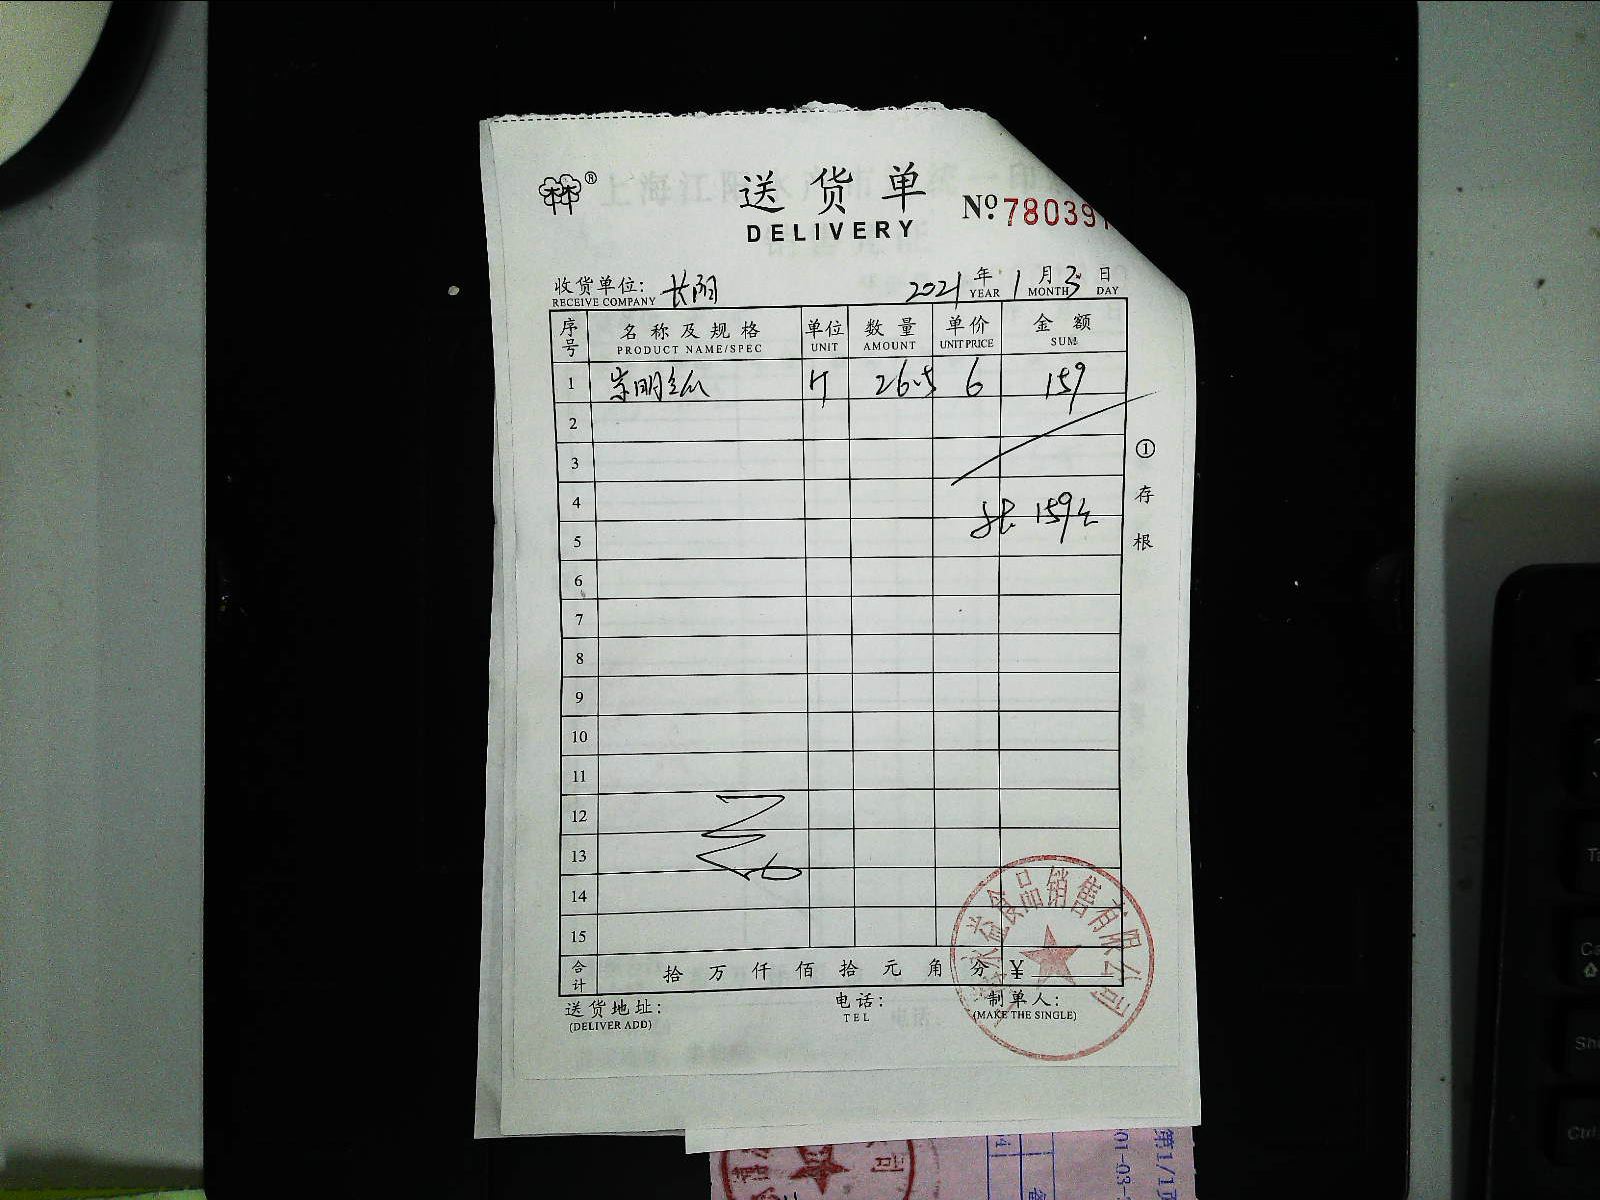 ®
送货单
DELIVERY
№ 780391
收货单位: 长阳 2021 年 1 月 3 日
RECEIVE COMPANY YEAR MONTH DAY
序号 名称及规格 单位 数量 单价 金额
PRODUCT NAME/SPEC UNIT AMOUNT UNIT PRICE SUM
1 崇明 斤 26.5 6 159
2
3
4
159元
5
6
7
8
9
10
11
12
13
14
15
合计 拾 万 仟 佰 拾 元 角 分 ¥
送货地址: 电话: 制单人:
(DELIVER ADD) TEL (MAKE THE SINGLE)
① 存根
食品销售有限公司
第1/1页
01-03-